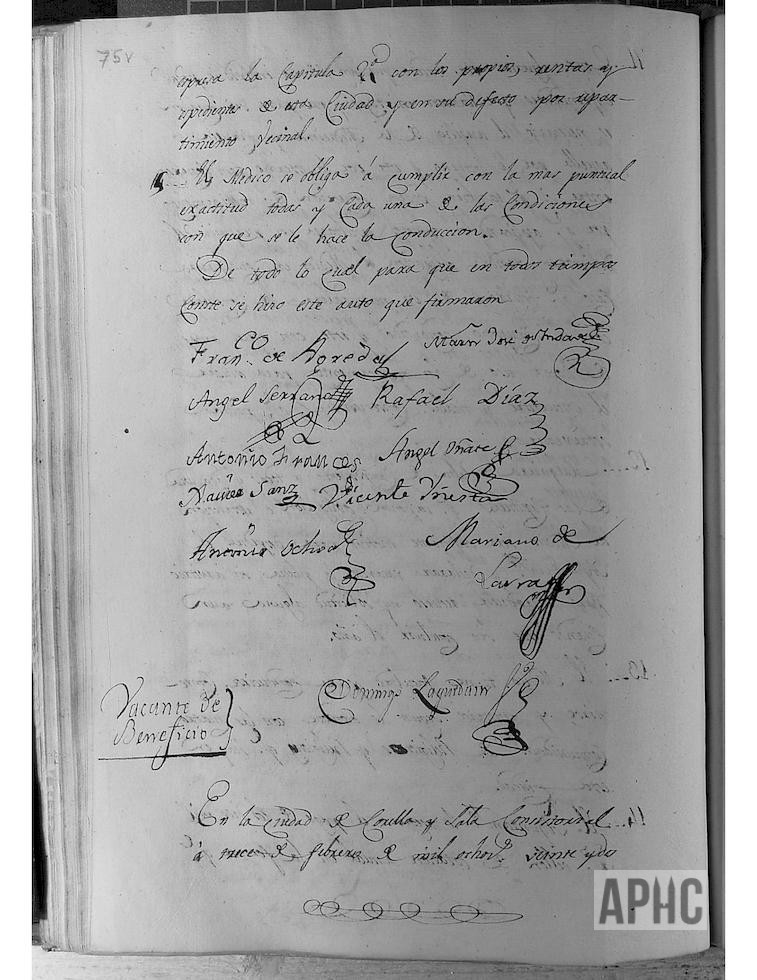 75v
espresa la Capitula 2ª con los propios, rentas y
espediente de esta Ciudad y en su defecto por repar-
timiento Vecinal.
15 El Medico se obliga á cumplir con la mas puntual
exactitud todas y cada una de las Condiciones
con que se le hace la Conduccion.
De todo lo cual para que en todos tiempos
Conste se hizo este auto que firmaron
Franco. de Agreda
Martin José
Angel Serrano Rafael Díaz
Antonio Frances Angel Oñate
Sanz Vicente
Antonio Ochoa
Mariano de
Larra
Vacante de
Beneficio
Domingo
En la Ciudad de Corella y Sala Consistorial
á trece de febrero de mil ochos. veinte y dos
APHC